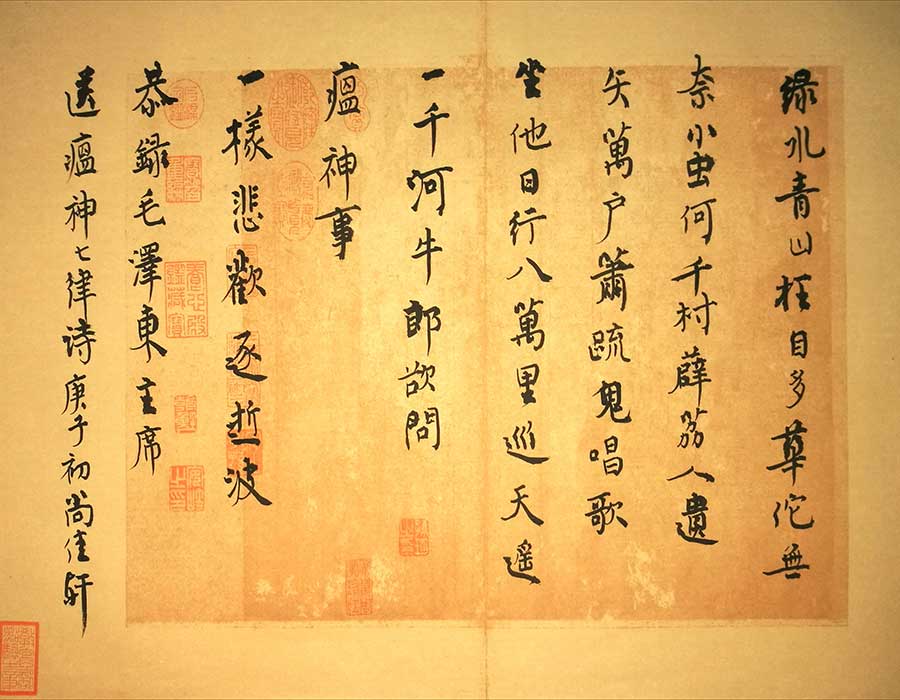 绿水青山枉目多華佗無
奈小虫何千村薜荔人遺
矢萬户簫疏鬼唱歌
坐他日行八萬里巡天遥
一千河牛郎欲問
瘟神事
一樣悲歡逐逝波
恭錄毛澤東主席
送瘟神七律诗庚子初尚佳軒